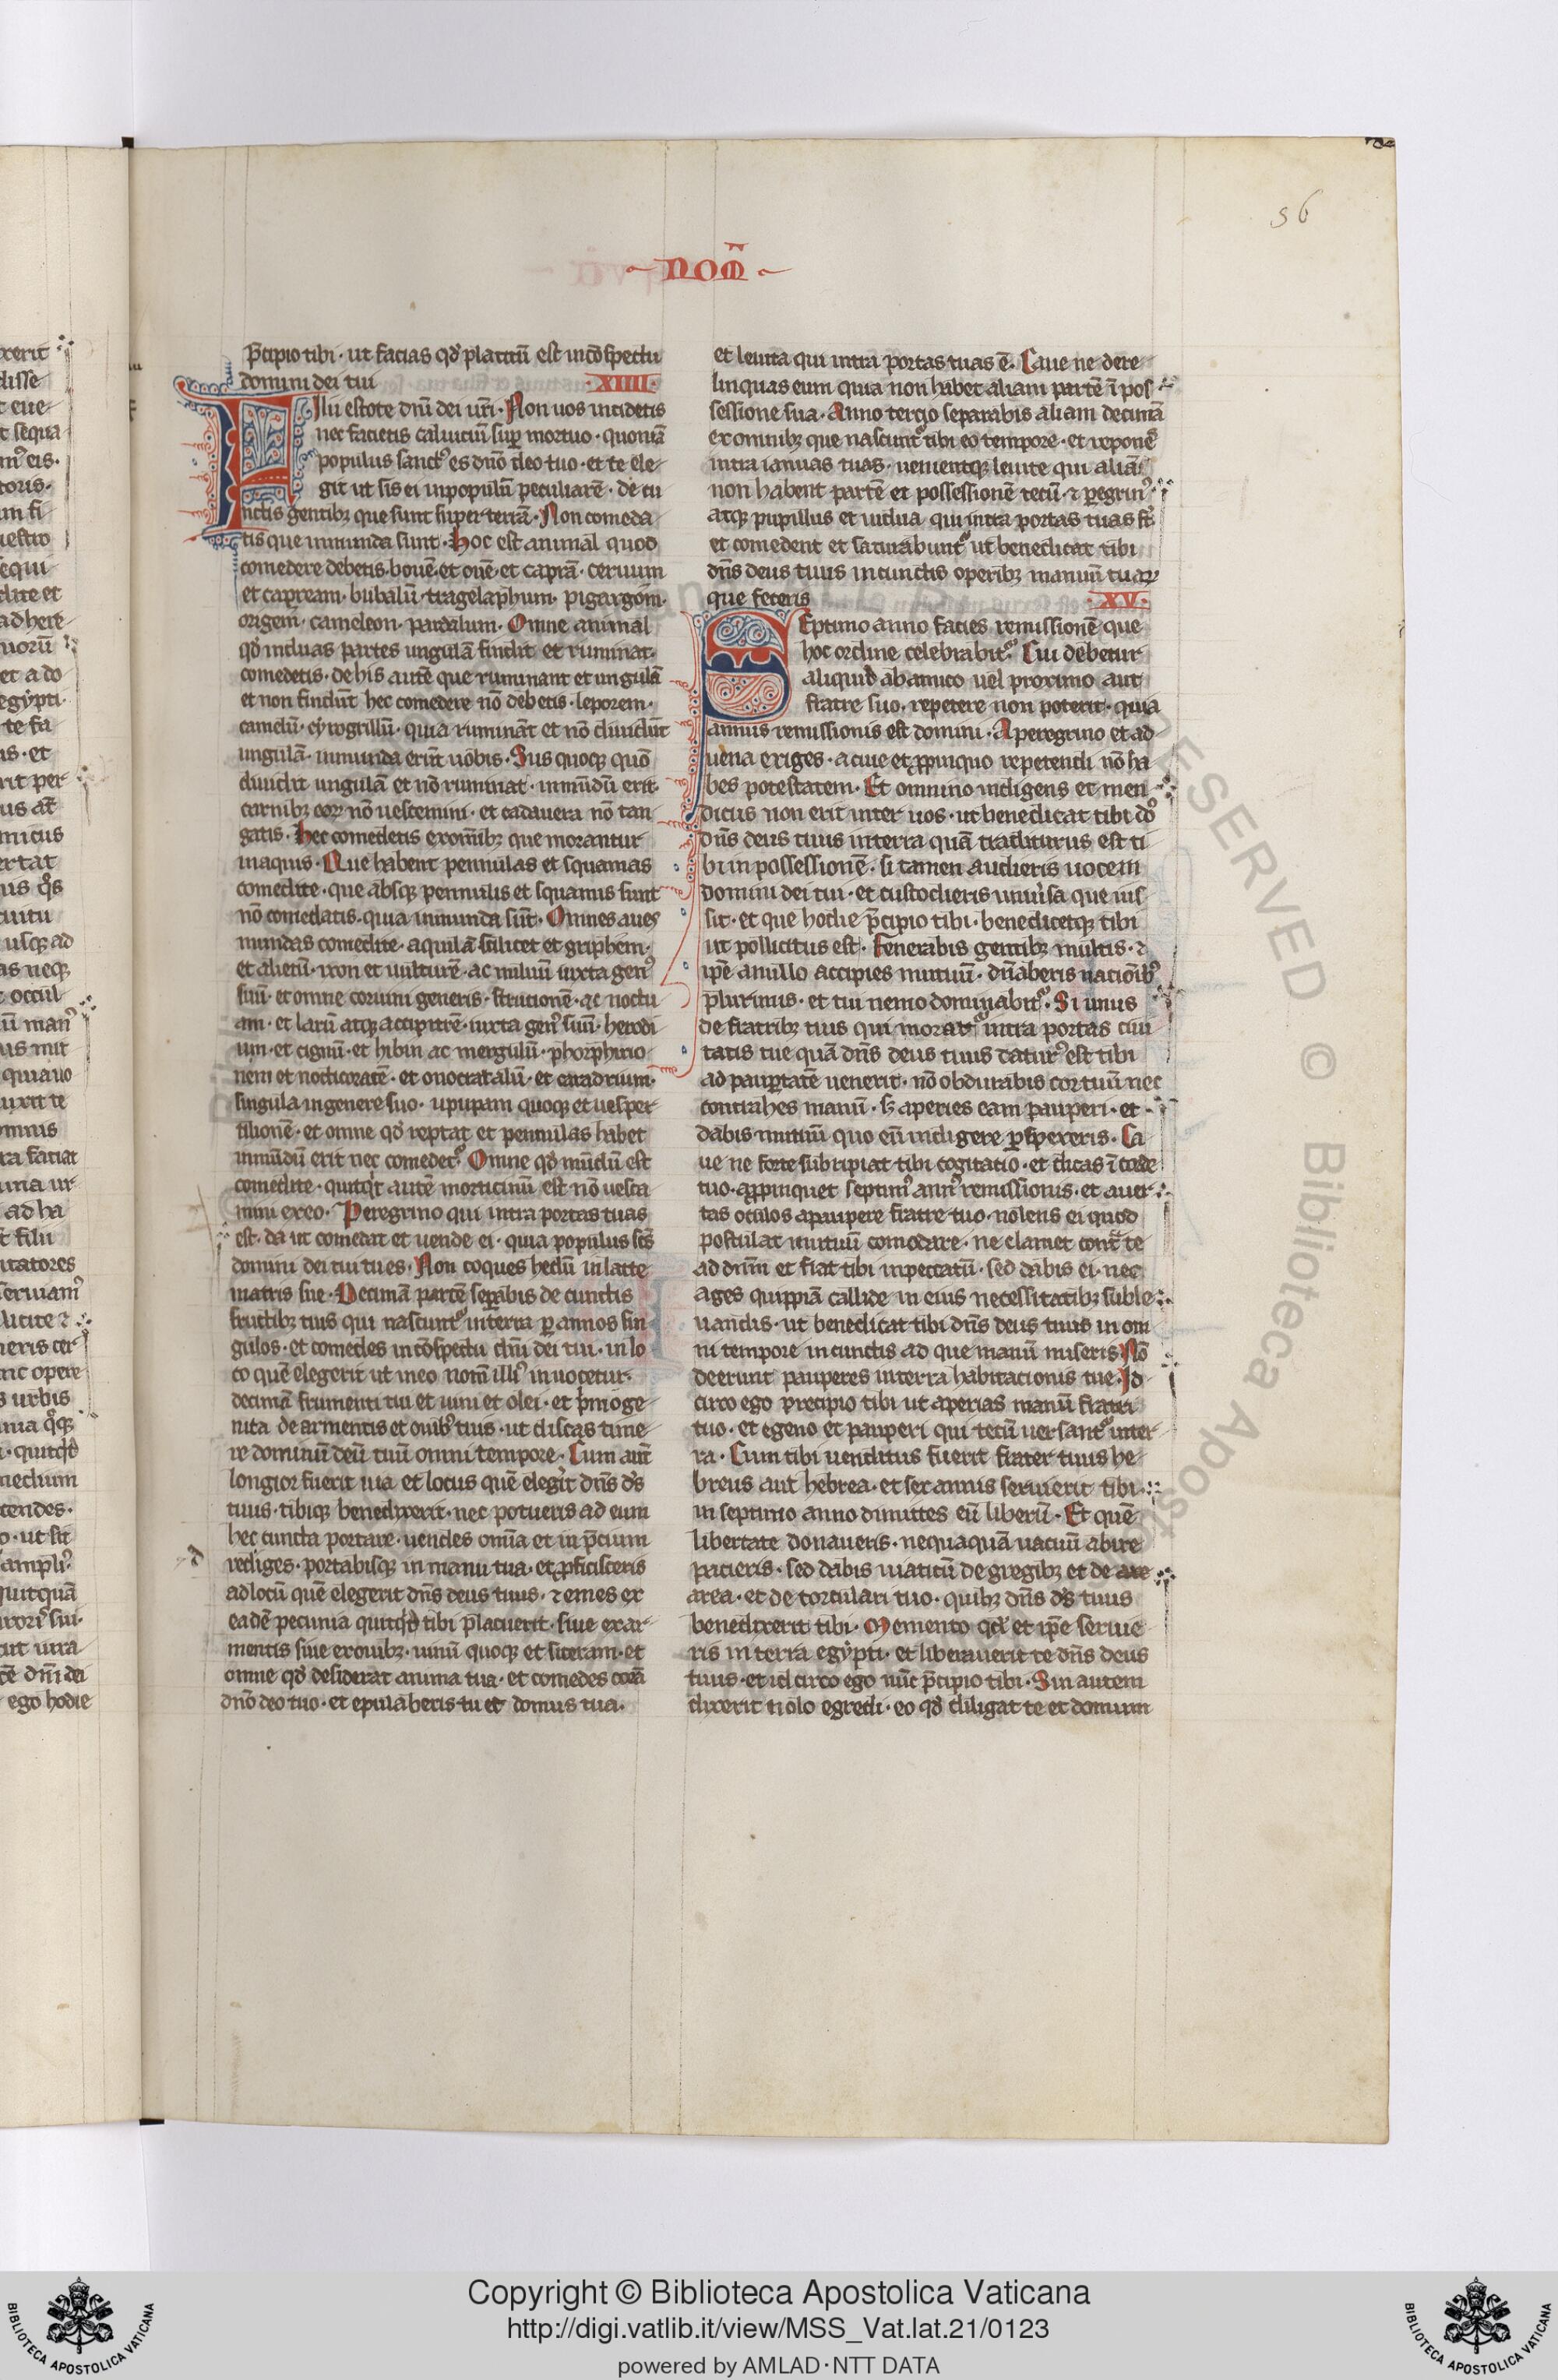 56
nom̄
p̄cipio tibi · ut facias qd̓ placitū est in cōspectu
domini dei tui · XIIII ·
FIlii estote dn̄i dei ur̄i · Non uos incidetis
nec facietis caluiciū suꝑ mortuo · quoniā
populus sanctꝰ es dn̄o deo tuo · et te ele
git ut sis ei in populū peculiarē · de cu
nctis gentibꝫ que sunt super terrā · Non comeda
tis que inmunda sunt · Hoc est animal quod
comedere debetis · bouē · et ouē · et caprā · ceruum
et capream · bubalū · tragelaphum · pigargom ·
origem · cameleon · pardalum · Omne animal
qd̓ in duas partes ungulā findit et ruminat ·
comedetis · de his autē que ruminant et ungulā
et non findūt hec comedere nō debetis · leporem ·
camelū · cyrogrillū · quia rumināt et nō diuidūt
ungulā · inmunda erūt uobis · Sus quoqꝫ quō
diuidit ungulā et nō ruminat · inmūdū erit ·
carnibꝫ eoꝝ nō uescemini · et cadauera nō tan
gatis · Hec comedetis ex om̄ibꝫ que morantur
in aquis · Que habent pennulas et squamas
comedite · que absqꝫ pennulis et squamis sunt
nō comedatis · quia inmunda sūt · Omnes aues
mundas comedite · aquilā scilicet et griphem ·
et alietū · ixon et uulturē · ac miluū iuxta genꝰ
suū · et omne coruini generis · strutionē · ac noctu
am · et larū atqꝫ accipitrē · iuxta genꝰ suū · herodi
um · et cignū · et hibin ac mergulū · phorphirio
nem et nocticoracē · et onocratalū · et caradrium ·
singula in genere suo · upupam quoqꝫ et uesper
tilionē · et omne qd̓ reptat et pennulas habet
inmūdū erit nec comedet᷑ · Omne qd̓ mūdū est
comedite · quicqd̓ autē morticinū est nō uesca
mini ex eo · Peregrino qui intra portas tuas
est · da ut comedat et uende ei · quia populus sc̄s
domini dei tui tu es · Non coques hedū in lacte
matris sue · Decimā partē seꝑabis de cunctis
fructibꝫ tuis qui nascunt᷑ in terra ꝑ annos sin
gulos · et comedes in cōspectu dn̄i dei tui · in lo
co quē elegerit ut in eo nom̄ illiꝰ inuocetur ·
decimā frumenti tui et uini et olei · et p̓moge
nita de armentis et ouibꝰ tuis · ut discas time
re dominū deū tuū omni tempore · Cum aut̄
longior fuerit uia et locus quē elegit dn̄s d̓s
tuus · tibiqꝫ benedixerit · nec potueris ad eum
hec cuncta portare · uendes om̄ia et in p̄cium
rediges · portabisqꝫ in manu tua · et ꝓficisceris
ad locū quē elegerit dn̄s deus tuus · ⁊ emes ex
eadē pecunia quicqd̓ tibi placuerit · siue ex ar
mentis siue ex ouibꝫ · uinū quoqꝫ et siceram · et
omne qd̓ desiderat anima tua · et comedes corā
dn̄o deo tuo · et epulaberis tu et domus tua ·
et leuita qui intra portas tuas ē · Caue ne dere
linquas eum quia non habet aliam partē ī pos
sessione sua · Anno tercio separabis aliam decimā
ex omnibꝫ que nascunt᷑ tibi eo tempore · et reponē
intra ianuas tuas · uenietqꝫ leuite qui aliā
non habent partē et possessionē tecū · ⁊ ꝑegrinꝰ
atqꝫ pupillus et uidua · qui intra portas tuas st̄
et comedent et saturabunt᷑ ut benedicat tibi
dn̄s deus tuus in cunctis operibꝫ manuū tuaꝝ
que feceris · XV ·
SEptimo anno facies remissionē que
hoc ordine celebrabit᷑ · Cui debetur
aliquid ab amico uel proximo aut
fratre suo · repetere non poterit · quia
annus remissionis est domini · A peregrino et ad
uena exiges · a ciue et ꝓpinquo repetendi nō ha
bes potestatem · Et omnino indigens et men
dicus non erit inter uos · ut benedicat tibi dō
dn̄s deus tuus in terra quā traditurus est ti
bi in possessionē · si tamen audieris uocem
domini dei tui · et custodieris uniūsa que ius
sit · et que hodie p̄cipio tibi · benedicetqꝫ tibi
ut pollicitus est · Fenerabis gentibꝫ multis · ⁊
ip̄e a nullo accipies mutuū · dn̄aberis nacionibꝰ
plurimis · et tui nemo dominabit᷑ · Si unus
de fratribꝫ tuis qui morat᷑ intra portas ciui
tatis tue quā dn̄s deus tuus daturꝰ est tibi
ad pauꝑtatē uenerit · nō obdurabis cor tuū nec
contrahes manū · sꝫ aperies eam pauperi · et
dabis mutuū quo eū indigere ꝑspexeris · Ca
ue ne forte subripiat tibi cogitatio · et dicas ī corde
tuo · aꝓpinquet septimꝰ annꝰ remissionis · et auer
tas oculos a paupere fratre tuo · nolens ei quod
postulat mutuū comodare · ne clamet cont᷑ te
ad dn̄m et fiat tibi in peccatū · sed dabis ei · nec
ages quippiā callide in eius necessitatibꝫ suble
uandis · ut benedicat tibi dn̄s deus tuus in om
ni tempore in cunctis ad que manū miseris Nō
deerunt pauperes in terra habitacionis tue · Id
circo ego precipio tibi ut aperias manū fratri
tuo · et egeno et pauperi qui tecū uersant᷑ in ter
ra · Cum tibi uenditus fuerit frater tuus he
breus aut hebrea · et sex annis seruierit tibi ·
in septimo anno dimittes eū liberū · Et quē
libertate donaueris · nequaquā uacuū abire
pacieris · sed dabis uiaticū de gregibꝫ et de are
area · et de torculari tuo · quibꝫ dn̄s d̓s tuus
benedixerit tibi · Memento qd̓ et ip̄e seruie
ris in terra egypti · et liberauerit te dn̄s deus
tuus · et id circo ego nūc p̄cipio tibi · Sin autem
dixerit nolo egredi · eo qd̓ diligat te et domum
Copyright © Biblioteca Apostolica Vaticana
http://digi.vatlib.it/view/MSS_Vat.lat.21/0123
powered by AMLAD·NTT DATA
BIBLIOTECA APOSTOLICA VATICANA
BIBLIOTECA APOSTOLICA VATICANA